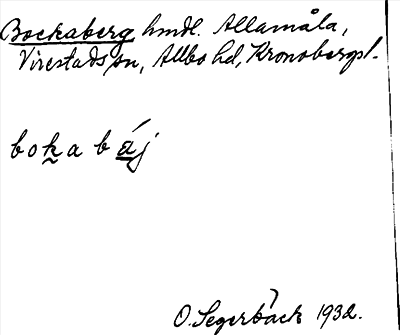 Bockaberg hmdl. Allamåla,
Virestads sn, Allbo hd, Kronobergs l.
bokabáj
O. Segerbäck 1932.